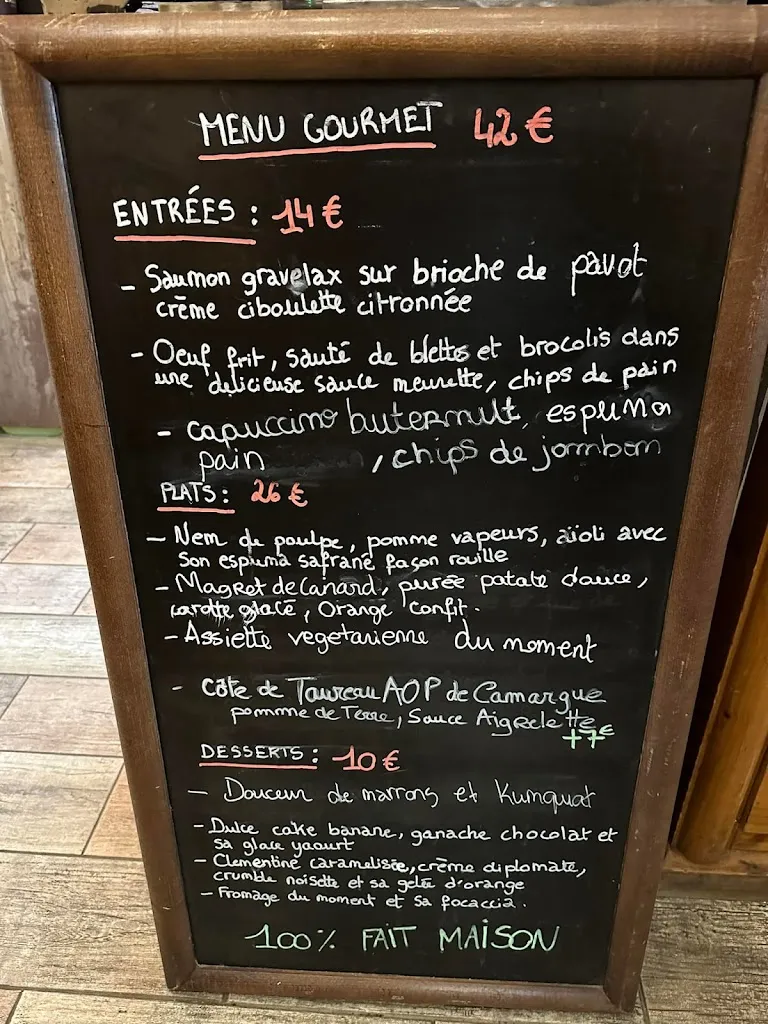 MENU GOURMET 42 €
ENTRÉES : 14 €
- Saumon gravelax sur brioche de pavot
crème ciboulette citronnée
- Oeuf frit, sauté de blettes et brocolis dans
une délicieuse sauce meurette, chips de pain
- capuccino buternut, espuma
pain , chips de jambon
PLATS : 26 €
- Nem de poulpe, pomme vapeurs, aïoli avec
son espuma safrané façon rouille
- Magret de Canard, purée patate douce,
carotte glacé, Orange confit.
- Assiette vegetarienne du moment
- Côte de Taureau AOP de Camargue
pomme de Terre, Sauce Aigrelette
+7€
DESSERTS : 10 €
- Douceur de marrons et Kumquat
- Dulce cake banane, ganache chocolat et
sa glace yaourt
- Clementine caramelisée, crème diplomate,
crumble noisette et sa gelée d'orange
- Fromage du moment et sa focaccia.
100% FAIT MAISON